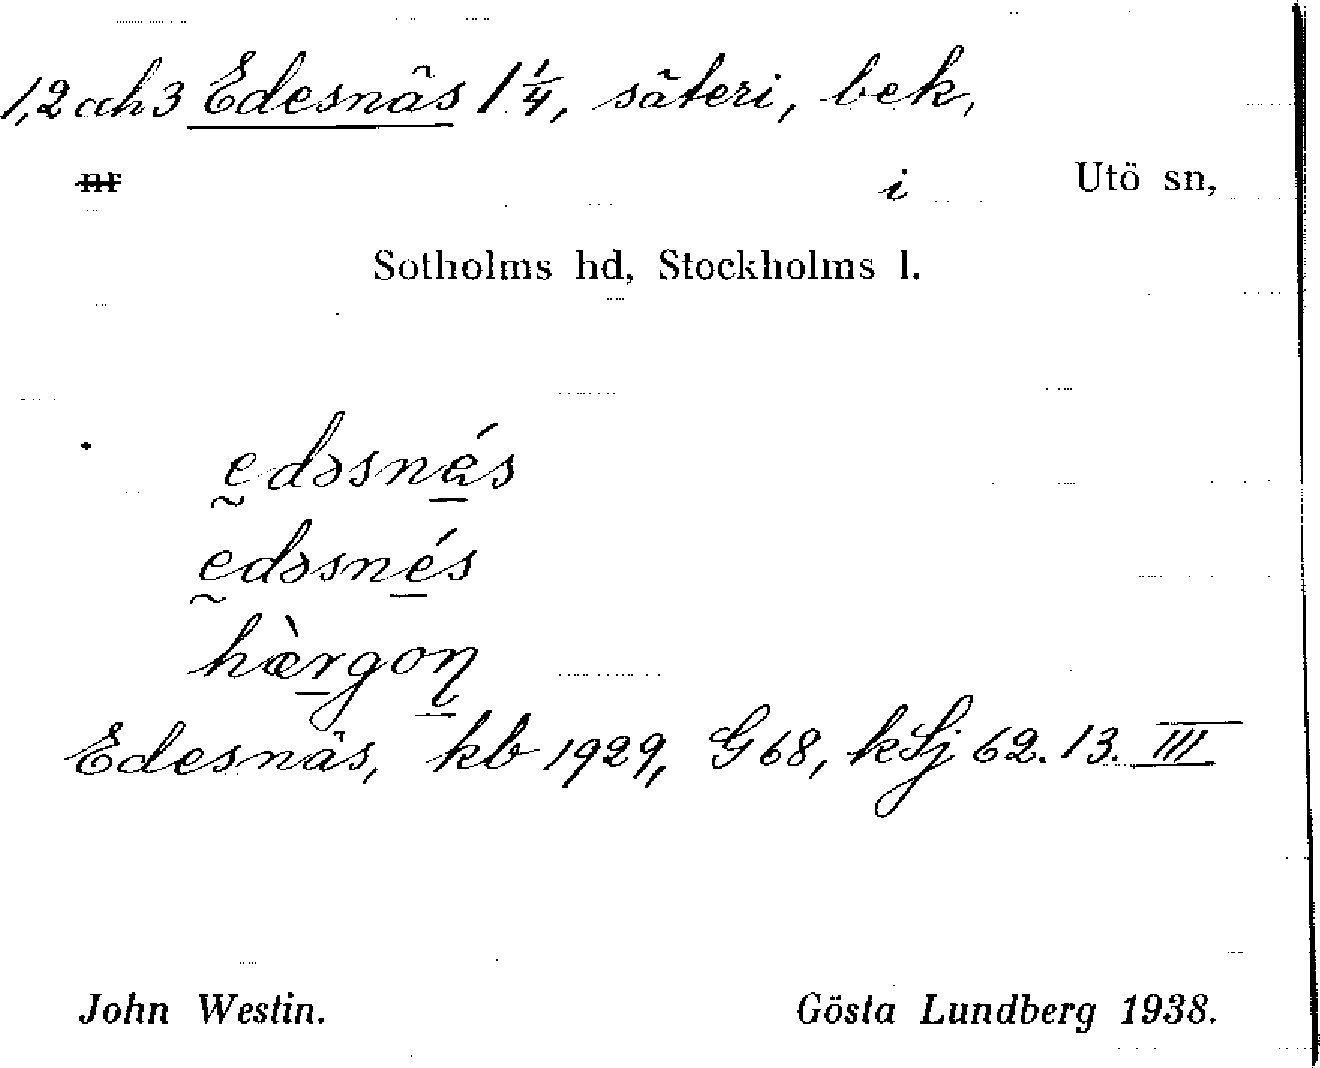 1, 2 och 3 Edesnäs 1 1/4, säteri, bek,
nr i Utö sn,
Sotholms hd, Stockholms l.
edəsnás
edəsnés
hærgoṇ
Edesnäs, kb 1929, G 68, k Sj 62. 13. III
John Westin. Gösta Lundberg 1938.